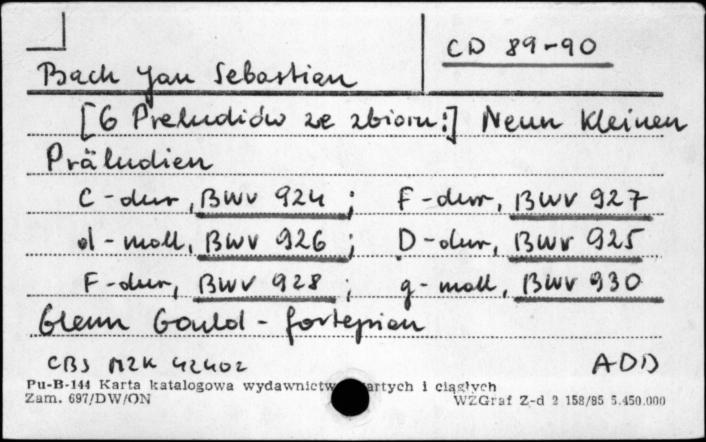 CD 89-90
Bach Jan Sebastian
[6 Preludiów ze zbioru:] Neun Kleinen
Präludien
C-dur, BWV 924 ; F-dur, BWV 927
d-moll, BWV 926 ; D-dur, BWV 925
F-dur, BWV 928 ; g-moll, BWV 930
Glenn Gould - fortepian
CBS M2K 42402 ADD
Pu-B-144 Karta katalogowa wydawnictw artych i ciągłych
Zam. 697/DW/ON WZGraf Z-d 2 158/85 5.450.000